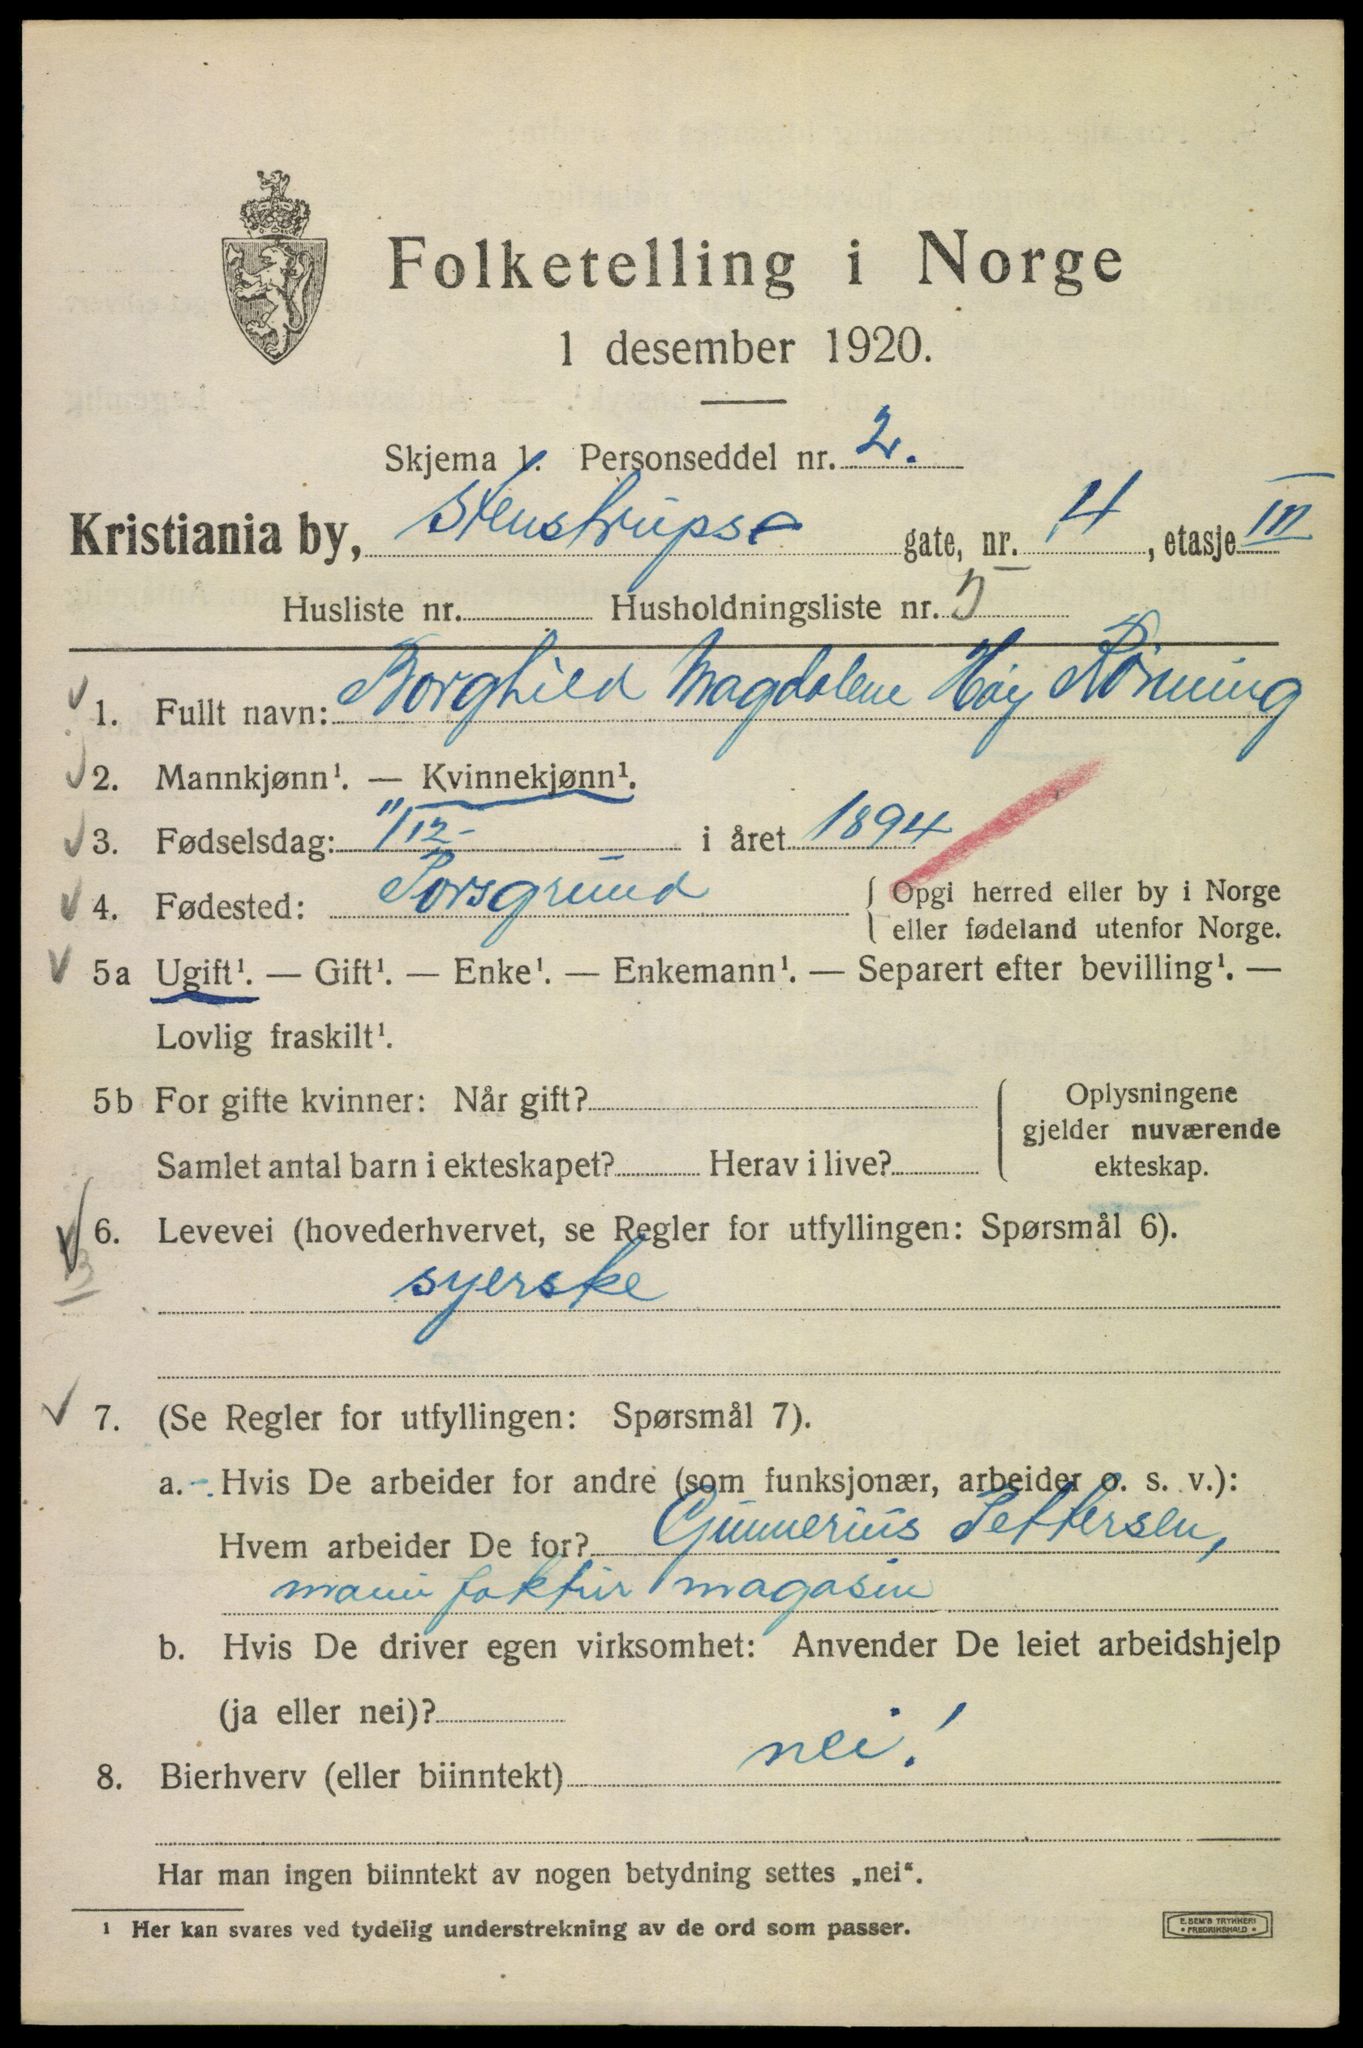 Folketelling i Norge
1 desember 1920.
Skjema 1. Personseddel nr. 2.
Kristiania by, Stenstrups gate, nr. 4, etasje III
Husliste nr. Husholdningsliste nr. 5
1. Fullt navn: Borghild Magdalene Høy Rønning
2. Mannkjønn¹. — Kvinnekjønn¹.
3. Fødselsdag: 11/12- i året 1894
4. Fødested: Porsgrund { Opgi herred eller by i Norge
eller fødeland utenfor Norge.
5a Ugift¹. — Gift¹. — Enke¹. — Enkemann¹. — Separert efter bevilling¹. —
Lovlig fraskilt¹.
5b For gifte kvinner: Når gift? { Oplysningene
gjelder nuværende
Samlet antal barn i ekteskapet? Herav i live? ekteskap.
6. Levevei (hovederhvervet, se Regler for utfyllingen: Spørsmål 6).
syerske
7. (Se Regler for utfyllingen: Spørsmål 7).
a. Hvis De arbeider for andre (som funksjonær, arbeider o. s. v.):
Hvem arbeider De for? Gunnerius Pettersen,
manufaktur magasin
b. Hvis De driver egen virksomhet: Anvender De leiet arbeidshjelp
(ja eller nei)?
8. Bierhverv (eller biinntekt) nei!
Har man ingen biinntekt av nogen betydning settes „nei“.
¹ Her kan svares ved tydelig understrekning av de ord som passer.
E. SEM'S TRYKKERI
• FREDRIKSHALD •